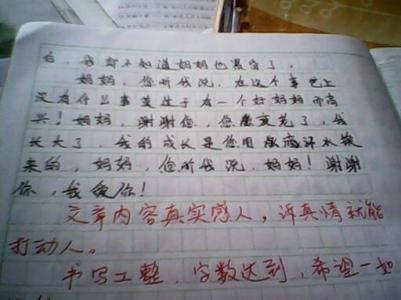 白，我却不知道妈妈也没睡了。
妈妈，您听我说，在这个事世上
没有什么事莫过于有一个好妈妈而高
兴！妈妈，谢谢您，您变老了，我
长大了，我的成长是您用血滴汗水换
来的，妈妈，您听我说，妈妈！谢谢
你，我爱你！
文章内容真实感人，诉真情就能
打动人。
书写工整，字数达到，希望一如